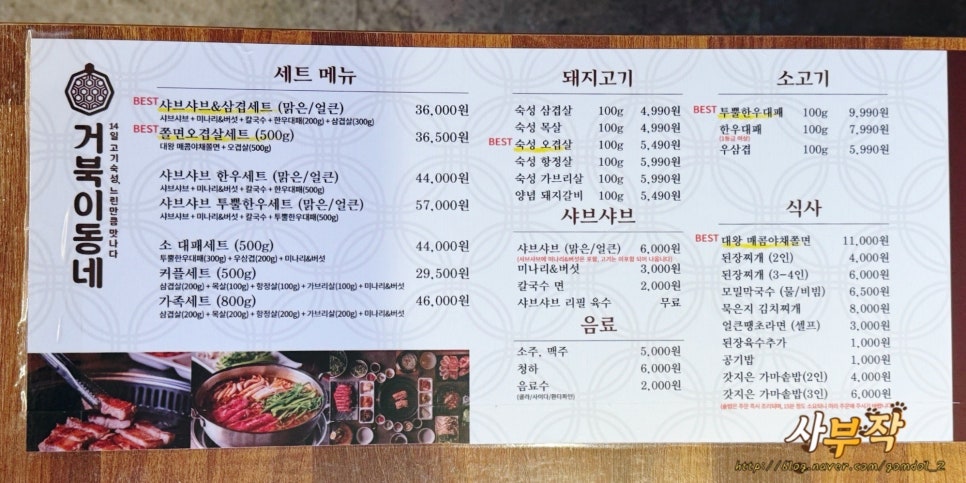 거북이동네
14일 고기숙성, 느린만큼 맛나다
세트 메뉴
BEST 샤브샤브&삼겹세트 (맑은/얼큰) 36,000원
샤브샤브 + 미나리&버섯 + 칼국수 + 한우대패(200g) + 삼겹살(300g)
BEST 쫄면오겹살세트 (500g) 36,500원
대왕 매콤야채쫄면 + 오겹살(500g)
샤브샤브 한우세트 (맑은/얼큰) 44,000원
샤브샤브 + 미나리&버섯 + 칼국수 + 한우대패(500g)
샤브샤브 투뿔한우세트 (맑은/얼큰) 57,000원
샤브샤브 + 미나리&버섯 + 칼국수 + 투뿔한우대패(500g)
소 대패세트 (500g) 44,000원
투뿔한우대패(300g) + 우삼겹(200g) + 미나리&버섯
커플세트 (500g) 29,500원
삼겹살(200g) + 목살(100g) + 항정살(100g) + 가브리살(100g) + 미나리&버섯
가족세트 (800g) 46,000원
삼겹살(200g) + 목살(200g) + 항정살(200g) + 가브리살(200g) + 미나리&버섯
돼지고기
숙성 삼겹살 100g 4,990원
숙성 목살 100g 4,990원
BEST 숙성 오겹살 100g 5,490원
숙성 항정살 100g 5,990원
숙성 가브리살 100g 5,990원
양념 돼지갈비 100g 5,490원
샤브샤브
샤브샤브 (맑은/얼큰) 6,000원
(샤브샤브에 미나리&버섯은 포함, 고기는 미포함 되어 나옵니다)
미나리&버섯 3,000원
칼국수 면 2,000원
샤브샤브 리필 육수 무료
음료
소주, 맥주 5,000원
청하 6,000원
음료수 2,000원
(콜라/사이다/환타파인)
소고기
BEST 투뿔한우대패 100g 9,990원
한우대패 100g 7,990원
(1등급 이상)
우삼겹 100g 5,990원
식사
BEST 대왕 매콤야채쫄면 11,000원
된장찌개 (2인) 4,000원
된장찌개 (3~4인) 6,000원
모밀막국수 (물/비빔) 6,500원
묵은지 김치찌개 8,000원
얼큰땡초라면 (셀프) 3,000원
된장육수추가 1,000원
공기밥 1,000원
갓지은 가마솥밥(2인) 4,000원
갓지은 가마솥밥(3인) 6,000원
(솥밥은 주문 즉시 조리되며, 15분 정도 소요되니 미리 주문해 주시기 바랍니다)
사부작
http://blog.naver.com/gomdol_2